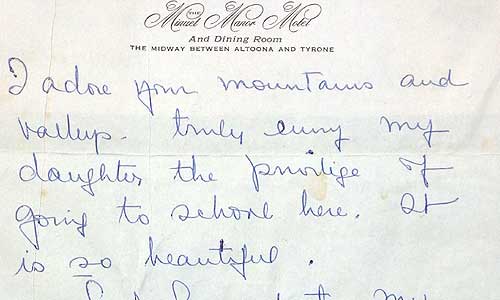 THE
Minuet Manor Motel
And Dining Room
THE MIDWAY BETWEEN ALTOONA AND TYRONE
I adore your mountains and
valleys. truly envy my
daughter the privilige of
going to schone here. It
is so beautiful.